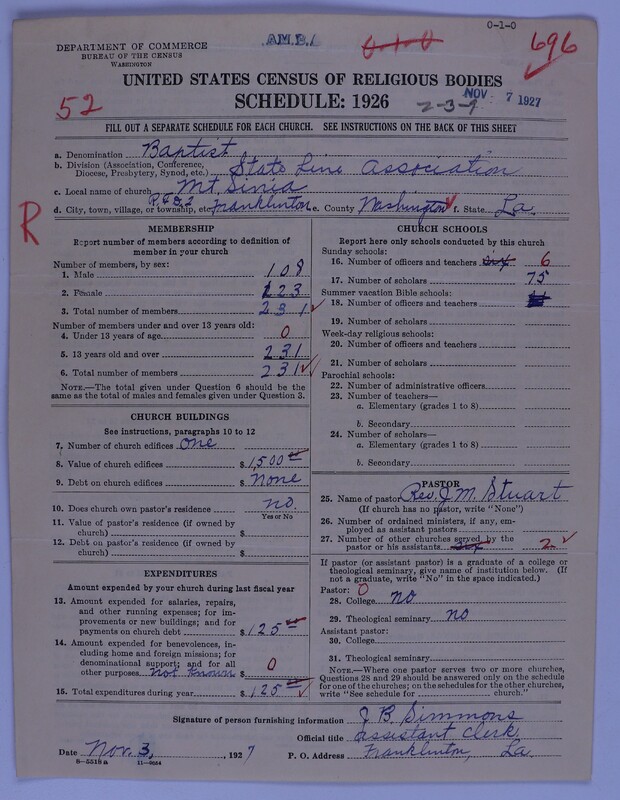 0-1-0
DEPARTMENT OF COMMERCE
BUREAU OF THE CENSUS
WASHINGTON
AM.B.
0-1-0
696
UNITED STATES CENSUS OF RELIGIOUS BODIES
SCHEDULE: 1926
52
2-3-9
NOV 7 1927
FILL OUT A SEPARATE SCHEDULE FOR EACH CHURCH. SEE INSTRUCTIONS ON THE BACK OF THIS SHEET
a. Denomination Baptist
b. Division (Association, Conference, Diocese, Presbytery, Synod, etc.) State Line Association
c. Local name of church Mt. Sinia
d. City, town, village, or township, etc. Franklinton e. County Washington f. State La.
R
MEMBERSHIP
Report number of members according to definition of
member in your church
Number of members, by sex:
1. Male 108
2. Female 123
3. Total number of members 231
Number of members under and over 13 years old:
4. Under 13 years of age 0
5. 13 years old and over 231
6. Total number of members 231
NOTE.—The total given under Question 6 should be the
same as the total of males and females given under Question 3.
CHURCH BUILDINGS
See instructions, paragraphs 10 to 12
7. Number of church edifices one
8. Value of church edifices $1,500
9. Debt on church edifices $ None
10. Does church own pastor's residence no
Yes or No
11. Value of pastor's residence (if owned by
church) $
12. Debt on pastor's residence (if owned by
church) $
EXPENDITURES
Amount expended by your church during last fiscal year
13. Amount expended for salaries, repairs,
and other running expenses; for im-
provements or new buildings; and for
payments on church debt $125
14. Amount expended for benevolences, in-
cluding home and foreign missions; for
denominational support; and for all
other purposes not known $ 0
15. Total expenditures during year $125
CHURCH SCHOOLS
Report here only schools conducted by this church
Sunday schools:
16. Number of officers and teachers six 6
17. Number of scholars 75
Summer vacation Bible schools:
18. Number of officers and teachers
19. Number of scholars
Week-day religious schools:
20. Number of officers and teachers
21. Number of scholars
Parochial schools:
22. Number of administrative officers
23. Number of teachers—
a. Elementary (grades 1 to 8)
b. Secondary
24. Number of scholars—
a. Elementary (grades 1 to 8)
b. Secondary
PASTOR
25. Name of pastor Rev. J. M. Stuart
(If church has no pastor, write "None")
26. Number of ordained ministers, if any, em-
ployed as assistant pastors
27. Number of other churches served by the
pastor or his assistants 2
If pastor (or assistant pastor) is a graduate of a college or
theological seminary, give name of institution below. (If
not a graduate, write "No" in the space indicated.)
Pastor: 0
28. College no
29. Theological seminary no
Assistant pastor:
30. College
31. Theological seminary
NOTE.—Where one pastor serves two or more churches,
Questions 28 and 29 should be answered only on the schedule
for one of the churches; on the schedules for the other churches,
write "See schedule for church."
Signature of person furnishing information J B. Simmons
Official title assistant clerk
Date Nov. 3, 1927 P. O. Address Franklinton, La.
8-5518a 11-8664